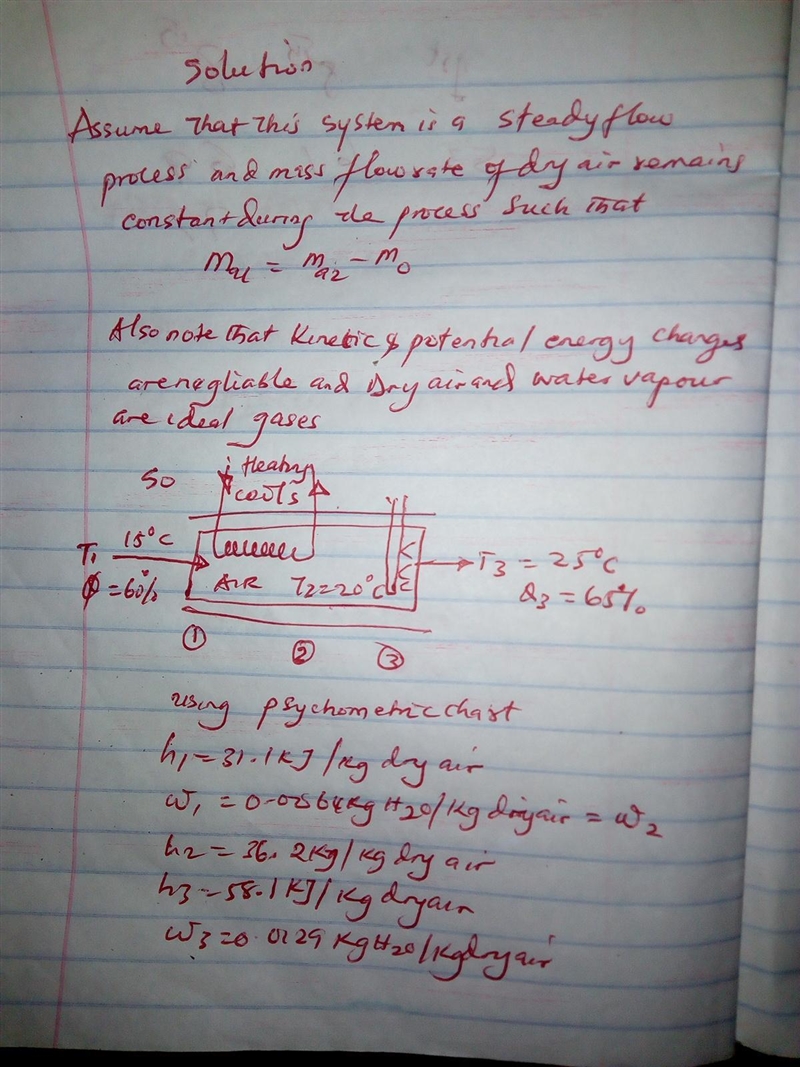 Solution
Assume that this system is a steady flow
process and mass flow rate of dry air remains
constant during the process such that
ma1 = ma2 - mo
Also note that Kinetic & potential energy changes
are negliable and Dry air and water vapour
are ideal gases
So
Heating
cools
T1 15°C
φ = 60%
AIR T2 = 20°C
T3 = 25°C
Q3 = 65%
① ② ③
using psychometric chart
h1 = 31.1 KJ/kg dry air
ω1 = 0.0064 kg H20/kg dry air = ω2
h2 = 36.2 kg/kg dry air
h3 = 58.1 KJ/kg dry air
ω3 = 0.0129 kg H20/kg dry air